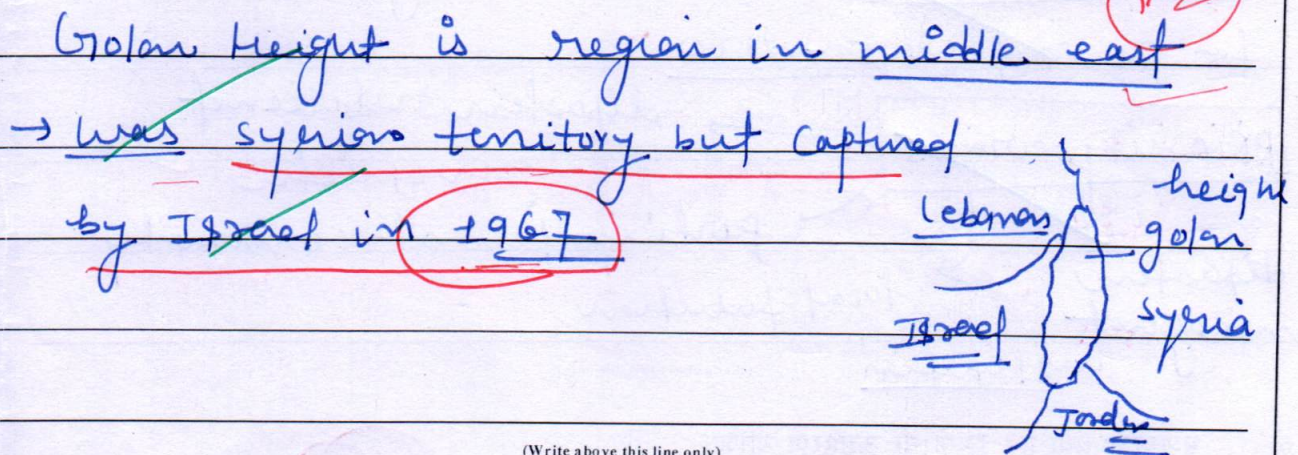 Golan Height is region in middle east
→ was syrian territory but captured
by Israel in 1967
height
golan
Lebanon
Israel
syria
Jordan
(Write above this line only)